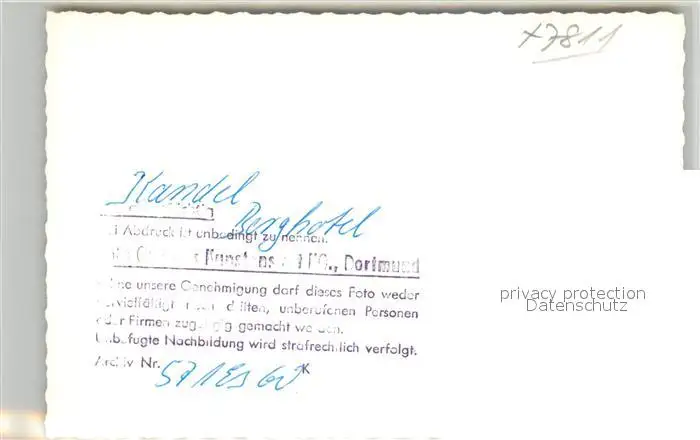 x7811
Kandel
Berghotel
Abdruck ist unbedingt zu nennen.
Dortmund
unsere Genehmigung darf dieses Foto weder
dritten, unberufenen Personen
oder Firmen zugängig gemacht werden.
Unbefugte Nachbildung wird strafrechtlich verfolgt.
Archiv Nr.
privacy protection
Datenschutz